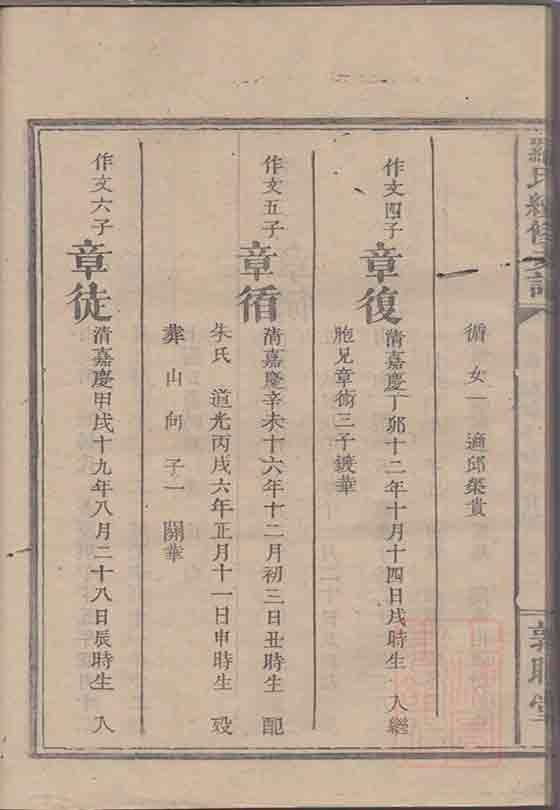 羅氏續修支譜
敦睦堂
循女一 適邱榮貴
作文四子
章復
清嘉慶丁卯十二年十月十四日戌時生 入繼
胞兄章術三子鍍華
作文五子
章循
清嘉慶辛未十六年十二月初三日丑時生 配
朱氏 道光丙戌六年正月十一日申時生 歿
葬 山 向 子一 關華
作文六子
章徒
清嘉慶甲戌十九年八月二十八日辰時生 入